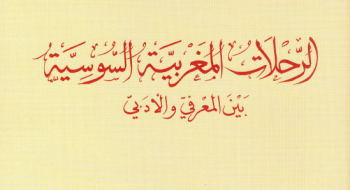 الرّحلات المغربيّة السّوسيّة
بين المعرفيّ والأدبيّ